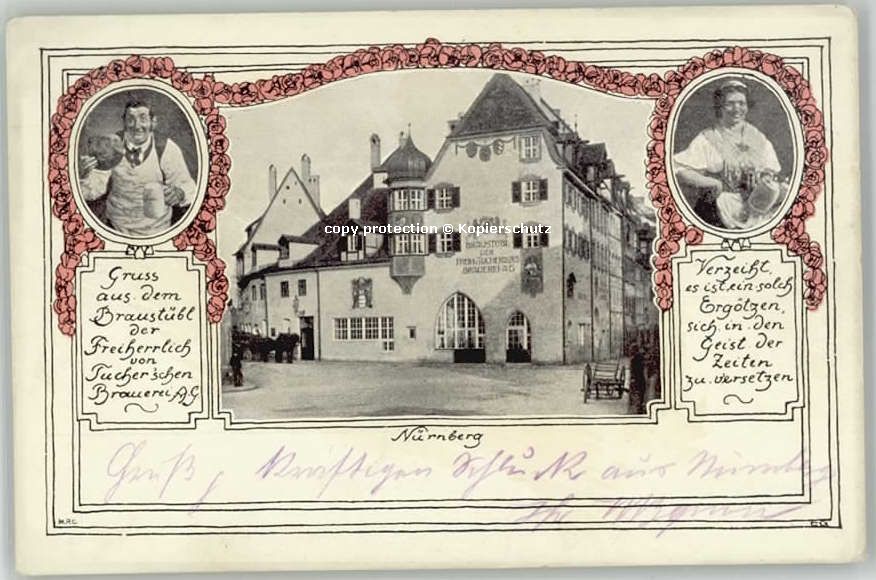 copy protection © Kopierschutz
BRAUSTÜBL
DER
FREIH. v. TUCHER'SCHEN
BRAUEREI A.G.
Gruss
aus dem
Braustübl
der
Freiherrlich
von
Tucher'schen
Brauerei A.G.
Verzeiht,
es ist ein solch
Ergötzen,
sich in den
Geist der
Zeiten
zu versetzen
Nürnberg
Gruß, kräftigen Schluck aus Nürnberg
Ihr